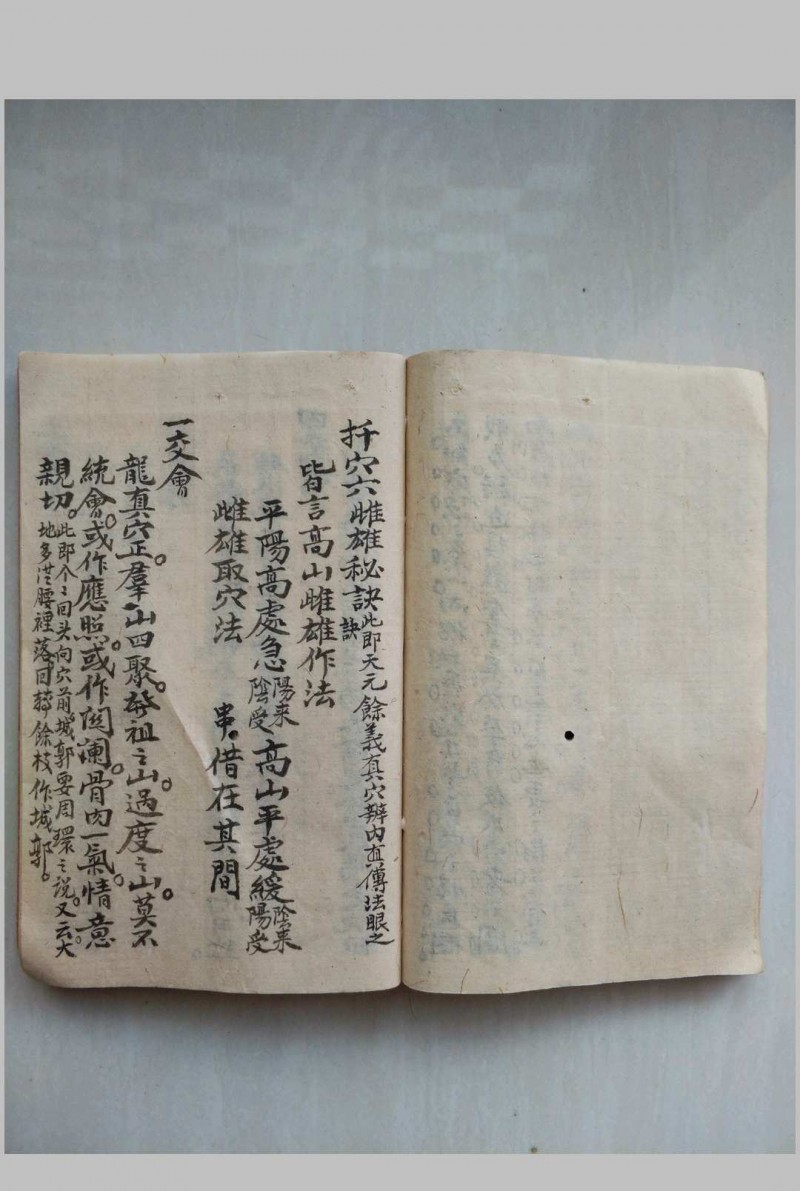 扦穴六雌雄秘訣此即天元餘義真穴辧內直傳法眼之訣
皆言高山雌雄作法
平陽高處急陽来陰受高山平處緩陰来陽受
雌雄取穴法 串。借在其間
一交會
龍真穴正。羣山四聚。發祖之山。過度之山。莫不
統會。或作應照。或作関闌。骨肉一氣。情意
親切。此即个々回头向穴前。城郭要周環之說。又云。大
地多従腰裡落。回轉餘枝作城郭。